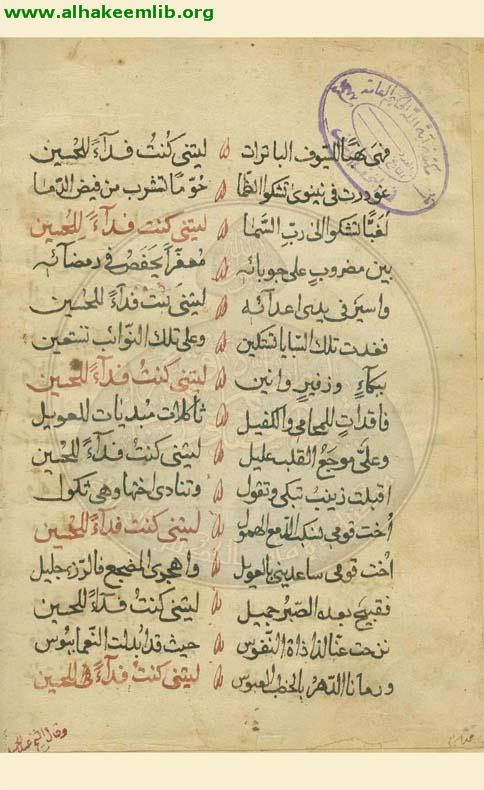 www.alhakeemlib.org
فهى نهبًا لسيوف الباترات لله ليتنى كنتُ فدآءً للحسين
غودرت في نينوى تشكوا الظما حُوّمًا تشرب من فيض الدّما
لُغّبًا تشكوا الى ربّ السّما لله ليتنى كنت فدآءً للحُسين
بين مضروبٍ على حوبائه لله معفّر يُخفض في رمضآئه
واسير في يدى اعدآئه لله ليتنى كنت فدآءً للحُسين
فغدت تلك السبايا تشتكين لله وعلى تلك النوائب تستعين
ببكآءٍ وزفيرٍ وانين لله ليتنى كنتُ فدآءً للحُسين
فاقداتٍ للمحامى والكفيل لله ثاكلات مبديات للعويل
وعلىٌ موجَعُ القلب عليل لله ليتنى كنتُ فدآءً للحُسين
اقبلت زينب تبكى وتقول لله وتنادى اختها وهى ثكول
اُخت قومى لنبك الدّمع الهمول لله ليتنى كنت فدآءً للحُسين
اُخت قومى ساعدينى بالعويل لله واهجرى المضجع فالرّزء جليل
فقبيح بعده الصّبرُ جميل لله ليتنى كنتُ فدآءً للحسين
نزحت عنّا لذاذة النّفوس لله حيث قد اُبدلت النّعما ببوس
ورمانا الدّهر بالخطب العبوس لله ليتنى كنتُ فدآءً للحسين
وقال الشيخ